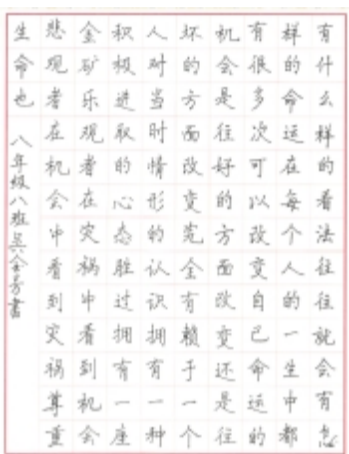 有什么样的看法往往就会有怎
样的命运在每个人的一生中都
有很多次可以改变自己命运的
机会是往好的方面改变还是往
坏的方面改变完全有赖于一个
人对当时情形的认识拥有一种
积极进取的心态胜过拥有一座
金矿乐观者在灾祸中看到机会
悲观者在机会中看到灾祸尊重
生命也
八年级八班吴芳書